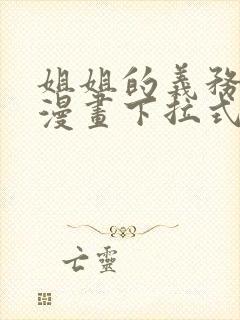 姐姐的義務
漫畫下拉式
亡靈